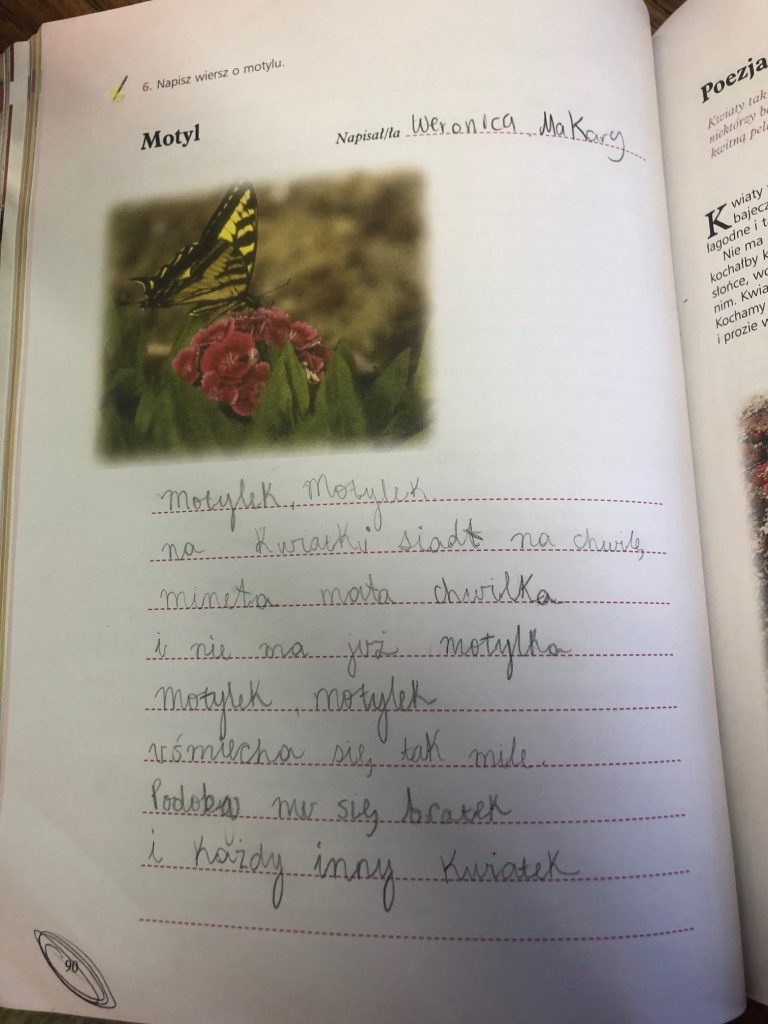 6. Napisz wiersz o motylu.
Motyl
Napisał/ła Weronica, Makary
Motylek, Motylek
na kwiatki siadł na chwilę,
mineła mała chwilka
i nie ma już motylka
Motylek, motylek
uśmiecha się, tak mile.
Podoba mu się, bratek
i każdy inny kwiatek
90
Poezja
Kwiaty tak
niektórzy
kwitną
Kwiaty
bajecz
łagodne i
Nie ma
kochałby
słońce,
nim.
Kochamy
i prozie